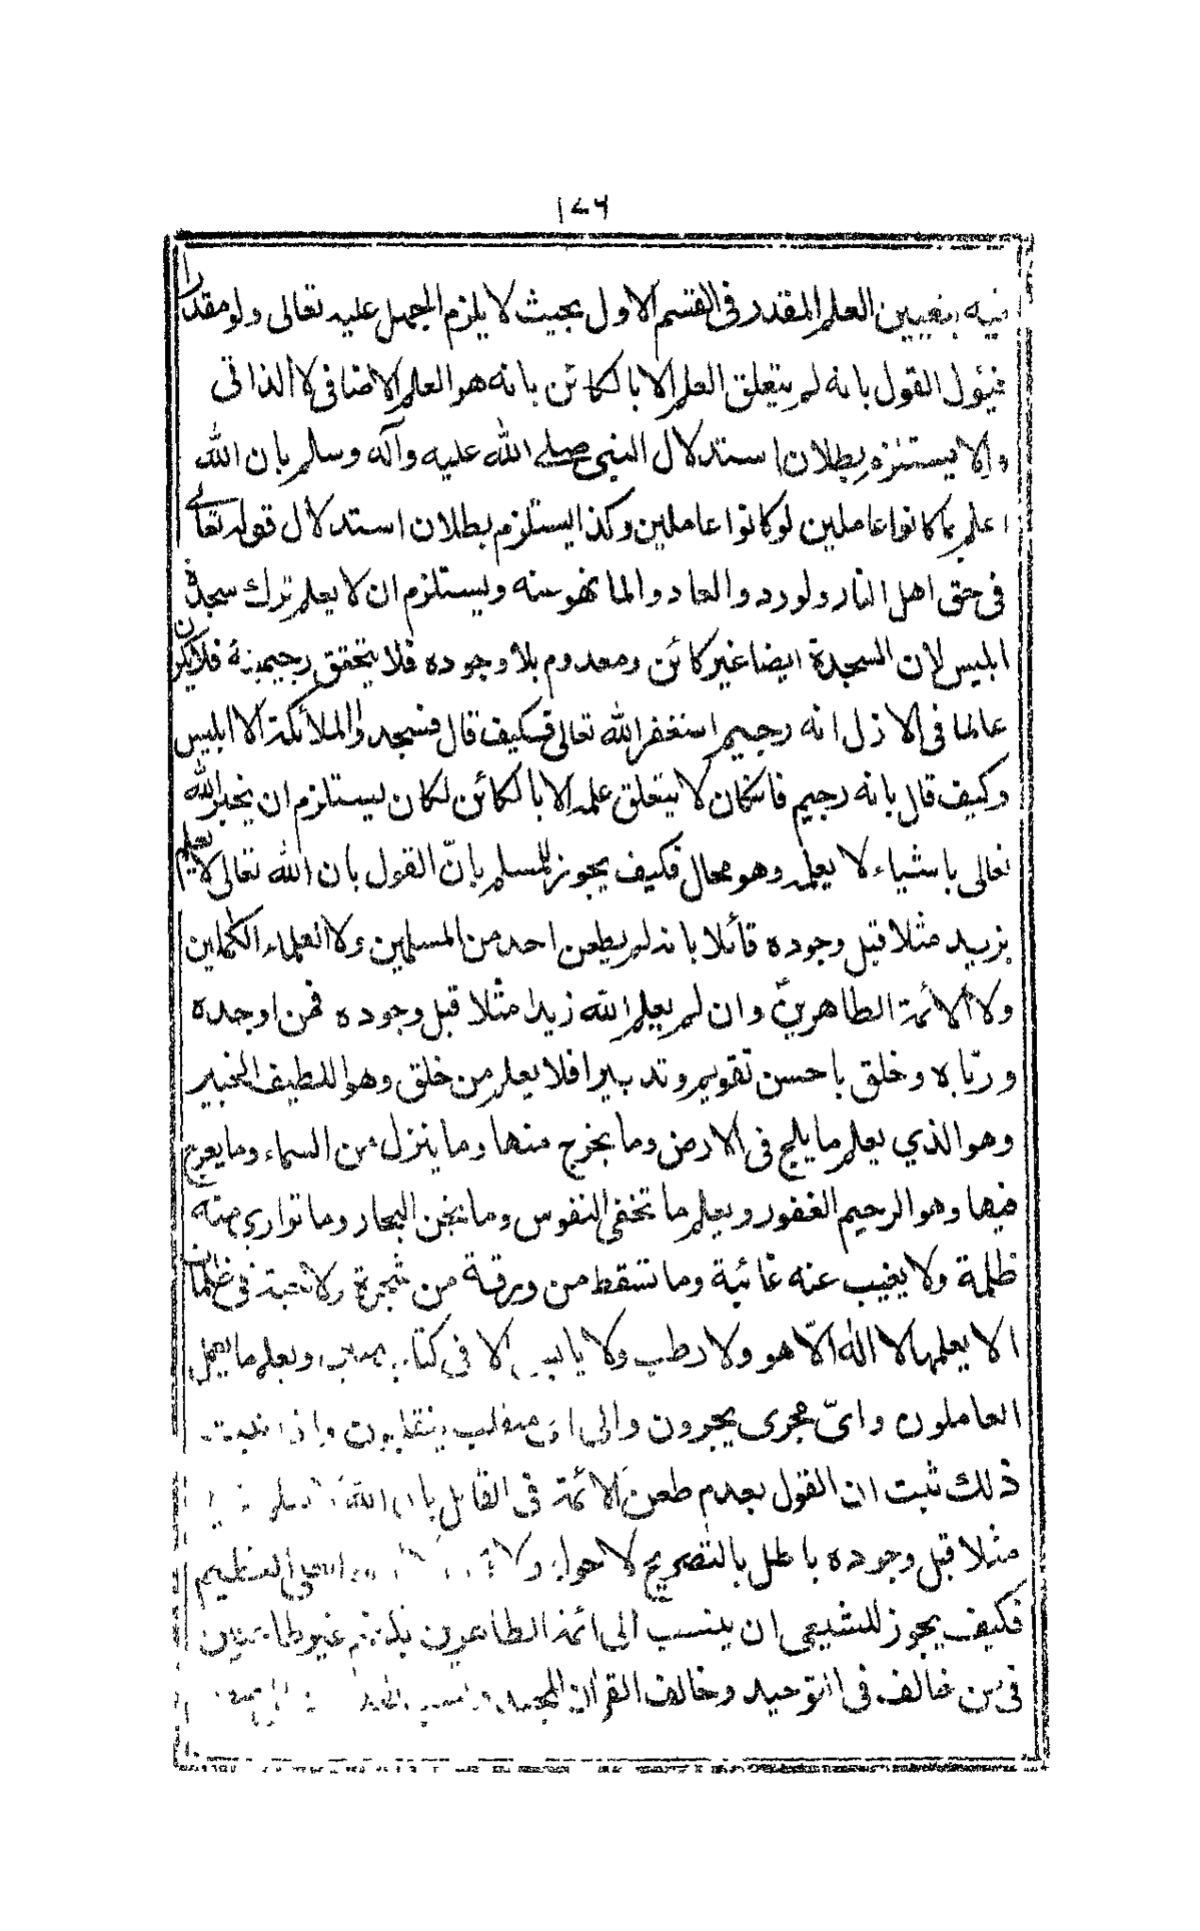 ١٧٦
فيه بتعيين العلم المقدر فى القسم الاول بحيث لا يلزم الجهل عليه تعالى ولو مقدرا
فيؤل القول بانه لم يتعلق العلم الا بالكائن بانه هو العلم الاضافى لا الذاتى
والا يستلزم بطلان استدلال النبى صلى الله عليه وآله وسلم بان الله
اعلم بما كانوا عاملين لو كانوا عاملين وكذا يستلزم بطلان استدلال قوله تعالى
فى حق اهل النار ولو ردوا لعادوا لما نهو عنه ويستلزم ان لا يعلم ترك سجدة
ابليس لان السجدة ايضا غير كائن ومعدوم بلا وجوده فلا يتحقق رجيميته فلا يكون
عالما فى الازل انه رجيم استغفر الله تعالى فكيف قال فسجدوا الملائكة الا ابليس
وكيف قال بانه رجيم فان كان لا يتعلق علمه الا بالكائن لكان يستلزم ان يخبر الله
تعالى باشياء لا يعلمه وهو محال فكيف يجوز للمسلم بانّ القول بان الله تعالى لا يعلم
بزيد مثلا قبل وجوده قائلا بانه لم يطعن احد من المسلمين ولا العلماء الكملين
ولا الائمة الطاهرين وان لم يعلم الله زيدا مثلا قبل وجوده فمن اوجده
وربّاه وخلق باحسن تقويم وتدبير افلا يعلم من خلق وهو اللطيف الخبير
وهو الذي يعلم ما يلج فى الارض وما يخرج منها وما ينزل من السماء وما يعرج
فيها وهو الرحيم الغفور ويعلم ما تخفى النفوس وما يخن البحار وما توارى منه
ظلمة ولا يغيب عنه غائبة وما تسقط من ورقة من شجرة ولا حبة فى
الا يعلمها لا اله الّا هو ولا رطب ولا يابس الا فى كتاب ويعلم ما يعمل
العاملون واىّ مجرى يجرون والى اى منقلب ينقلبون واذا
ذلك ثبت ان القول بعدم طعن الائمة فى القائل بان الله
مثلا قبل وجوده باطل بالتصريح لا حول ولا العظيم
فكيف يجوز للشيعى ان ينسب الى ائمة الطاهرين بانهم غير طاعنين
فى من خالف فى التوحيد وخالف القرآن المجيد